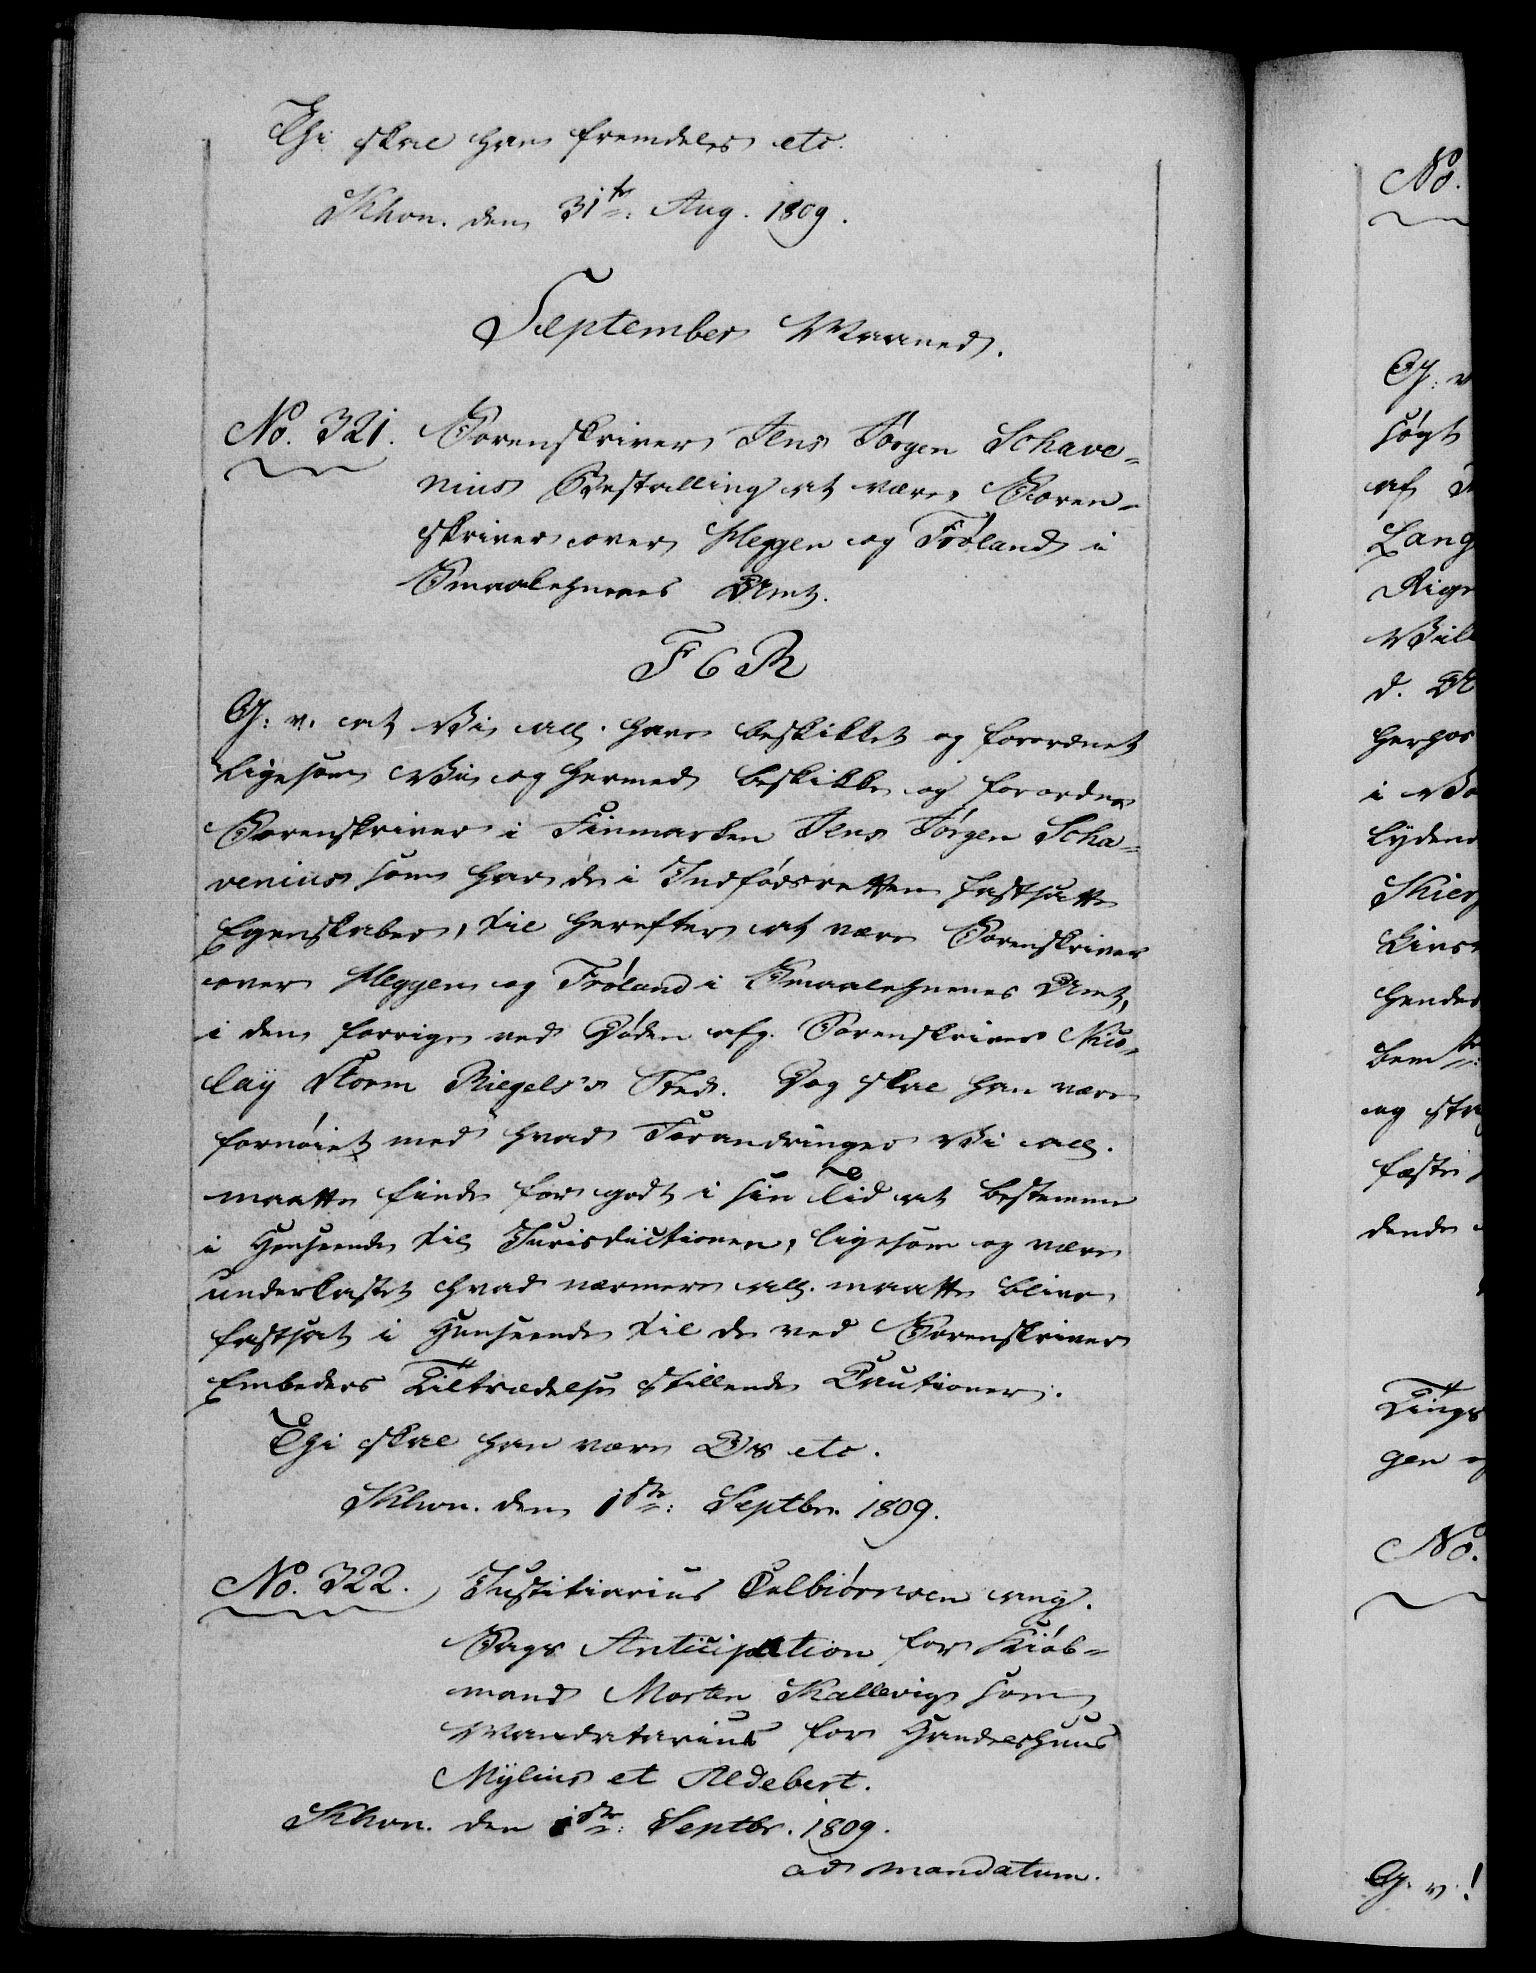 Thi skal han fremdeles etc.
Khvn. den 31te Aug. 1809.
September Maaned.
No. 321. Sorenskriver Jens Jörgen Schave-
nius Bestalling at være Soren-
skriver over Heggen og Frøland i
Smaalehnenes Amt.
F 6 R
G: v. at Vi all. have beskikket og forordnet
ligesom Vi og hermed beskikke og forordne
Sorenskriver i Finmarken Jens Jørgen Scha-
venius som har de i Indfødsretten fastsatte
Egenskaber, til herefter at være Sorenskriver
over Heggen og Frøland i Smaalehnenes Amt,
i den forrige ved Døden afg. Sorenskriver Nico-
lay Storm Riegels's Sted. Dog skal han være
fornøiet med hvad Forandringer Vi all.
maatte finde for godt i sin Tid at bestemme
i Henseende til Jurisdictionen, ligesom og være
underkastet hvad nærmere all. maatte blive
fastsat i Henseende til de ved Sorenskriver
Embeders Tiltrædelse stillende Cautioner.
Thi skal han være Os etc.
Khvn. den 1ste Septbr. 1809.
No. 322. Justitiarius Colbiørnsen ang.
Sags Anticipation for Kiøb-
mand Morten Kallevig som
Mandatarius for Handelshuus
Mÿlius et Aldebert.
Khvn. den 1ste Septbr. 1809.
ad mandatum.
No.
G: v
søgt
af
Lang
Rige
d.
i
lydend
og
dende
gen
No.
G: v: